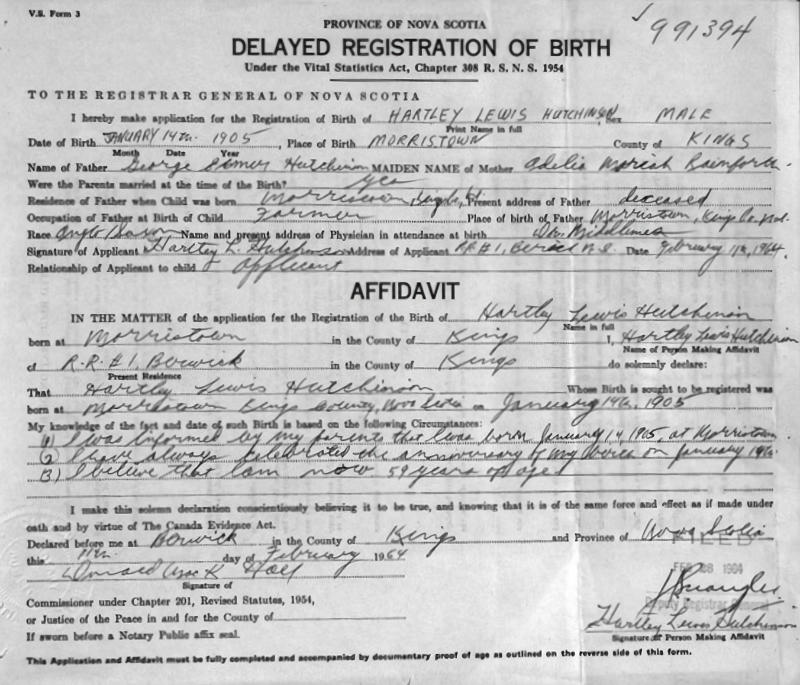 V.S. Form 3
991394
PROVINCE OF NOVA SCOTIA
DELAYED REGISTRATION OF BIRTH
Under the Vital Statistics Act, Chapter 308 R. S. N. S. 1954
TO THE REGISTRAR GENERAL OF NOVA SCOTIA
I hereby make application for the Registration of Birth of HARTLEY LEWIS HUTCHINSON, Sex MALE
Print Name in full
Date of Birth JANUARY 14th 1905, Place of Birth MORRISTOWN County of KINGS
Month Date Year
Name of Father George Hutchinson MAIDEN NAME of Mother Adelia Mariah Rainforth
Were the Parents married at the time of the Birth? yes
Residence of Father when Child was born Morristown, Kings Present address of Father deceased
Occupation of Father at Birth of Child Farmer Place of birth of Father Morristown, Kings Co. N.S.
Race Anglo Saxon Name and present address of Physician in attendance at birth Dr.
Signature of Applicant Hartley L. Hutchinson Address of Applicant R.R #1, Berwick N.S. Date February 11th, 1964.
Relationship of Applicant to child applicant
AFFIDAVIT
IN THE MATTER of the application for the Registration of the Birth of Hartley Lewis Hutchinson
Name in full
born at Morristown in the County of Kings I, Hartley Lewis Hutchinson
Name of Person Making Affidavit
of R.R #1, Berwick in the County of Kings do solemnly declare:
Present Residence
That Hartley Lewis Hutchinson Whose Birth is sought to be registered was
born at Morristown Kings County, Nova Scotia on January 14th, 1905
My knowledge of the fact and date of such Birth is based on the following Circumstances:
(1) I was informed by my parents that I was born January 14, 1905, at Morristown
(2) I have always celebrated the anniversary of my birth on January 14th
(3) I believe that I am now 59 years of age
I make this solemn declaration conscientiously believing it to be true, and knowing that it is of the same force and effect as if made under
oath and by virtue of The Canada Evidence Act.
Declared before me at Berwick in the County of Kings and Province of Nova Scotia
this 11th day of February 1964
FILED
FEB 28 1964
Donald Mac K Hall
Signature of
Deputy Registrar General
Commissioner under Chapter 201, Revised Statutes, 1954,
or Justice of the Peace in and for the County of
Hartley Lewis Hutchinson
Signature of Person Making Affidavit
If sworn before a Notary Public affix seal.
This Application and Affidavit must be fully completed and accompanied by documentary proof of age as outlined on the reverse side of this form.